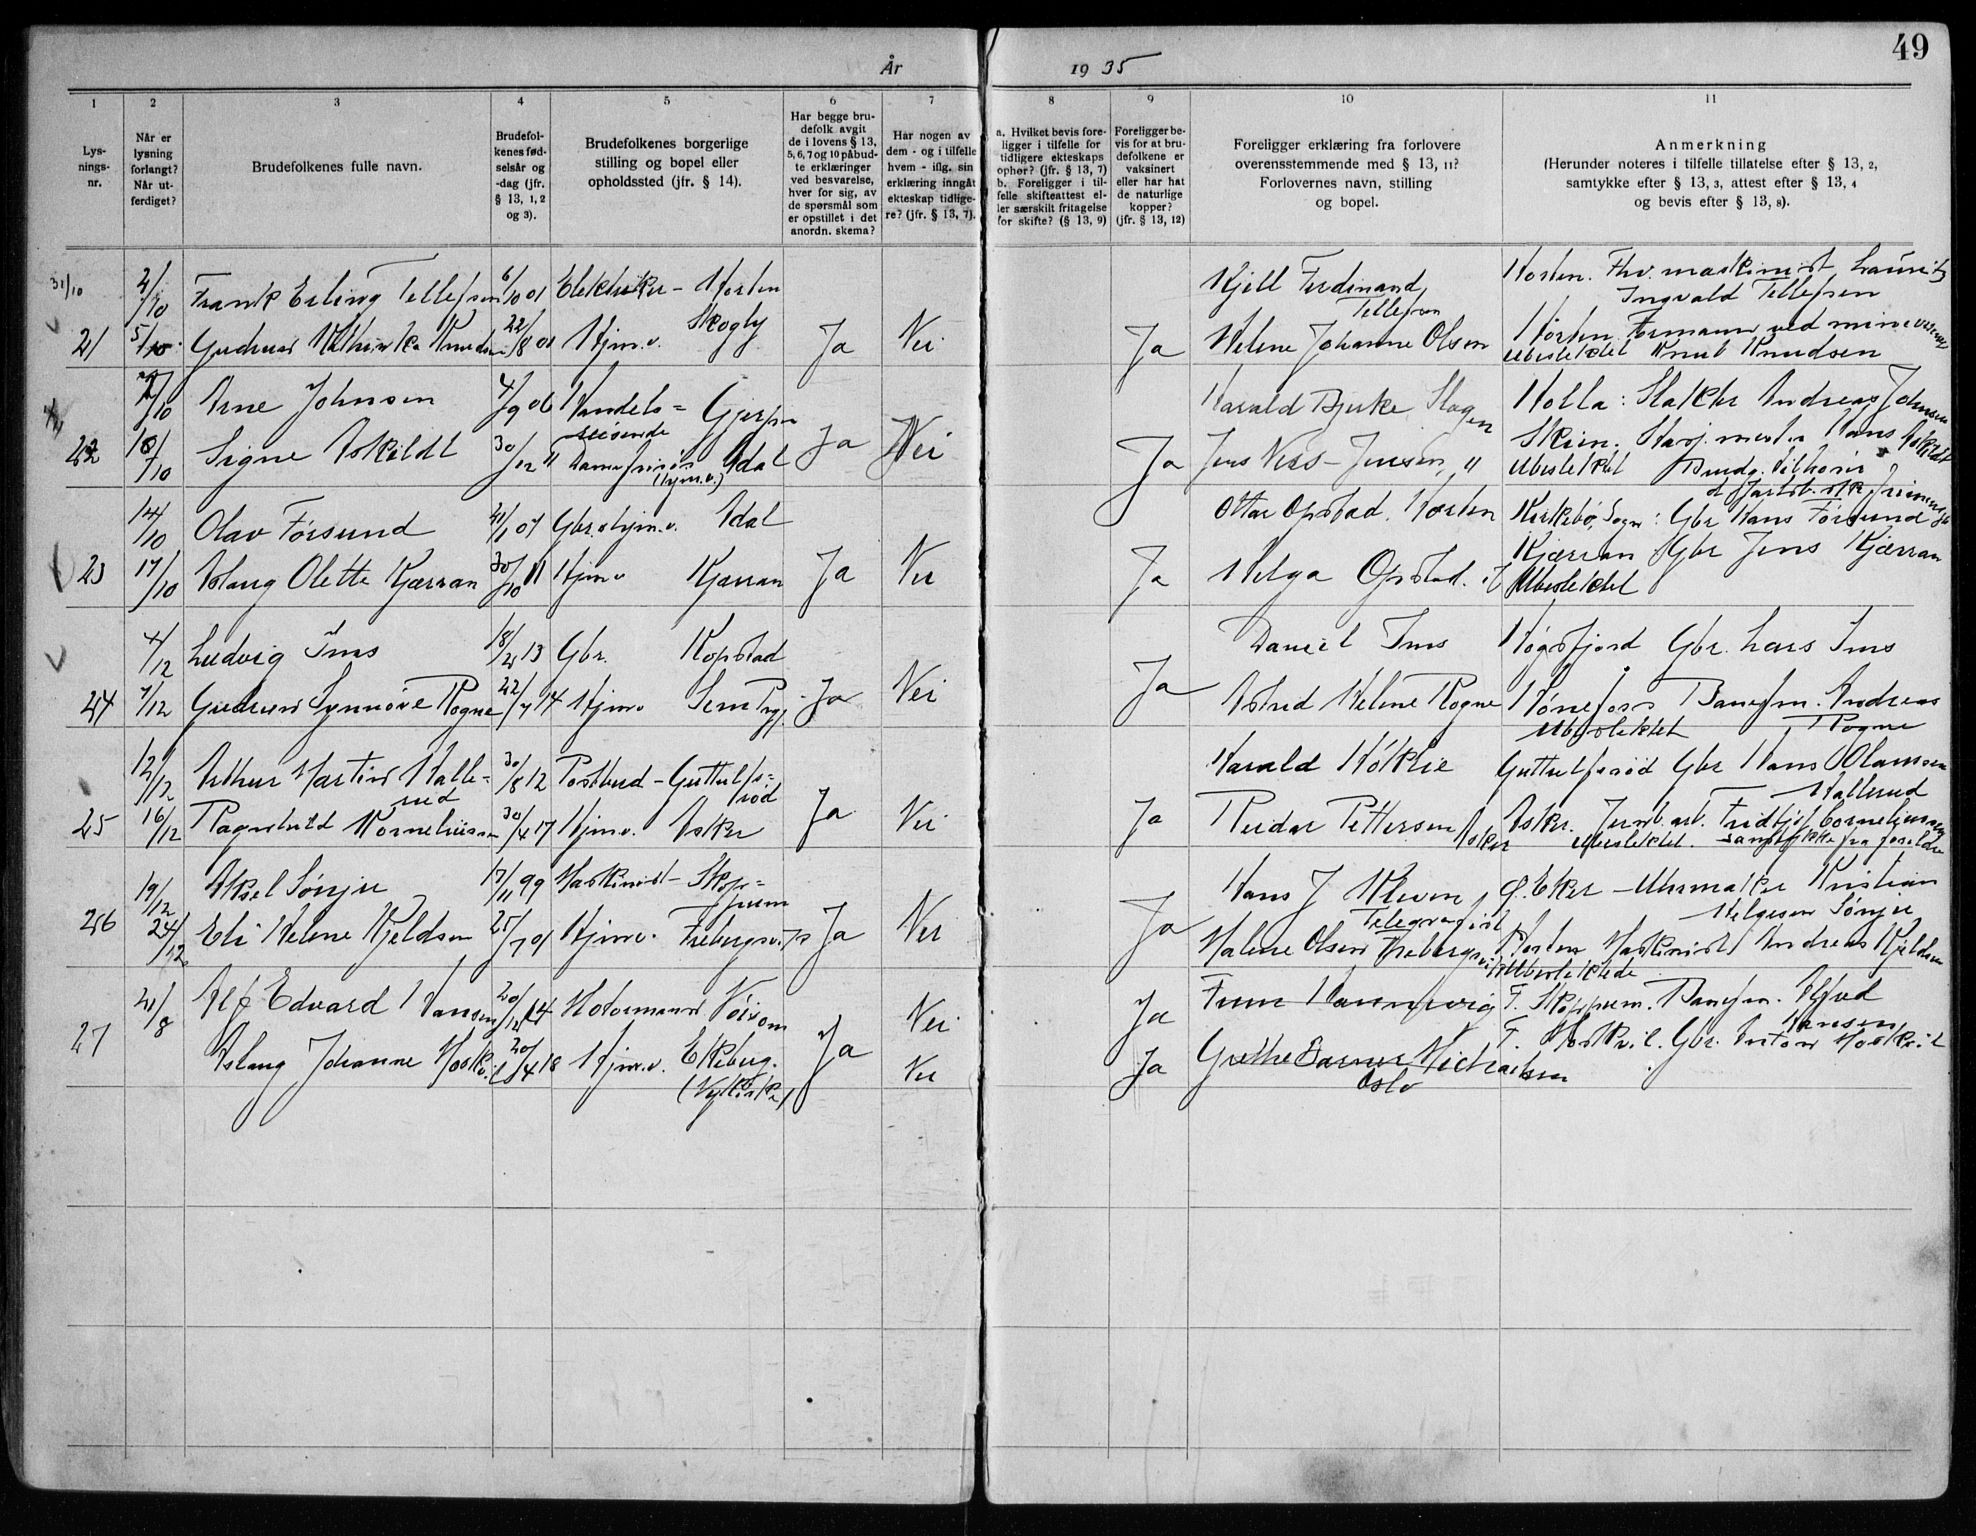 49
År 1935
1 2 3 4 5 6 7 8 9 10 11
Lys-
nings-
nr.
Når er
lysning
forlangt?
Når ut-
ferdiget?
Brudefolkenes fulle navn.
Brudefol-
kenes fød-
selsår og
-dag (jfr.
§ 13, 1, 2
og 3).
Brudefolkenes borgerlige
stilling og bopel eller
opholdssted (jfr. § 14).
Har begge bru-
defolk avgit
de i lovens § 13,
5, 6, 7 og 10 påbud-
te erklæringer
ved besvarelse,
hver for sig, av
de spørsmål som
er opstillet i det
anordn. skema?
Har nogen av
dem - og i tilfelle
hvem - iflg. sin
erklæring inngått
ekteskap tidlige-
re? (jfr. § 13, 7).
a. Hvilket bevis fore-
ligger i tilfelle for
tidligere ekteskaps
ophør? (jfr. § 13, 7)
b. Foreligger i til-
felle skifteattest el-
ler særskilt fritagelse
for skifte? (§ 13, 9)
Foreligger be-
vis for at bru-
defolkene er
vaksinert
eller har hat
de naturlige
kopper?
(jfr. § 13, 12)
Foreligger erklæring fra forlovere
overensstemmende med § 13, 11?
Forlovernes navn, stilling
og bopel.
Anmerkning
(Herunder noteres i tilfelle tillatelse efter § 13, 2,
samtykke efter § 13, 3, attest efter § 13, 4
og bevis efter § 13, 8).
31/10 2/10 Frank Erling Tellefsen 6/10 01 Elektriker - Horten Kjell Ferdinand Horten. Fhv. maskinist Lauritz
Skogly Tellefsen Ingvald Tellefsen
21 5/10 Gudrun Kathinka Knudsen 22/8 01 Hjm.v. Ja Nei Ja Helene Johanne Olsen Horten Formann ved minevesenet
Ubeslektet Knut Knudsen
7/10 Arne Johnsen 4/9 06 Handels= Gjerpen Harald Bjerke Slagen Holla: Slakter Andreas Johnsen
reisende
22 18/10 Signe Askildt 30/12 11 Damefrisør Ådal Ja Nei Ja Jens Ness-Jensen, " Skien. Hans Askildt
(Hjm.v.) Ubeslektet
14/10 Olav Førsund 21/1 07 Gbr.s hjm.v. Ådal Ottar Opstad. Horten Kirkebø, Sogn: Gbr Hans Førsund
23 17/10 Aslaug Olette Kjærran 30/10 11 Hjm.v Kjærran Ja Nei Ja Helga Opstad. Kjærran Gbr Jens Kjærran
Ubeslektet
4/12 Ludvig Ims 18/2 13 Gbr. Kopstad Daniel Ims Høgsfjord Gbr. Lars Ims
24 7/12 Gudrun Synnöve Rogne 22/7 14 Hjm.v Sem Ja Nei Ja Astrid Helene Rogne Hønefoss Banefm. Andreas
Ubeslektet Rogne
12/12 Arthur Martin Halle= 30/8 12 Postbud - Guttulfs= Harald Höklie Guttulfsröd Gbr Hans Olaussen
rud röd Hallerud
25 16/12 Ragnhild Korneliussen 30/4 17 Hjm.v. Asker Ja Nei Ja Reidar Pettersen Asker Asker. Jernb. arb. Fridtjof Corneliussen
Ubeslektet. samtykke fra foreldre
19/12 Aksel Sönju 17/11 99 Maskinist - Skop= Hans J Kleven Ø. Eker - Uhrmaker Kristian
pum Telegrafist Helgesen Sönju
26 24/12 Eli Helene Kjeldsen 25/7 01 Hjm.v. Falebergsv. 73 Ja Nei Ja Malene Olsen Horten Maskinist Andreas Kjeldsen
Ubeslektede
21/8 Alf Edvard Hansen 20/12 14 Motormann Nei Ja Finn F. Skoppum. Banefm. Alfred
Hansen
27 Aslaug Johanne Moskvil 20/4 18 Hjm.v. Ekeberg. Ja Nei Ja Grethe Michaelsen F. Moskvil. Gbr. Anton Moskvil
(Nykirke) Oslo